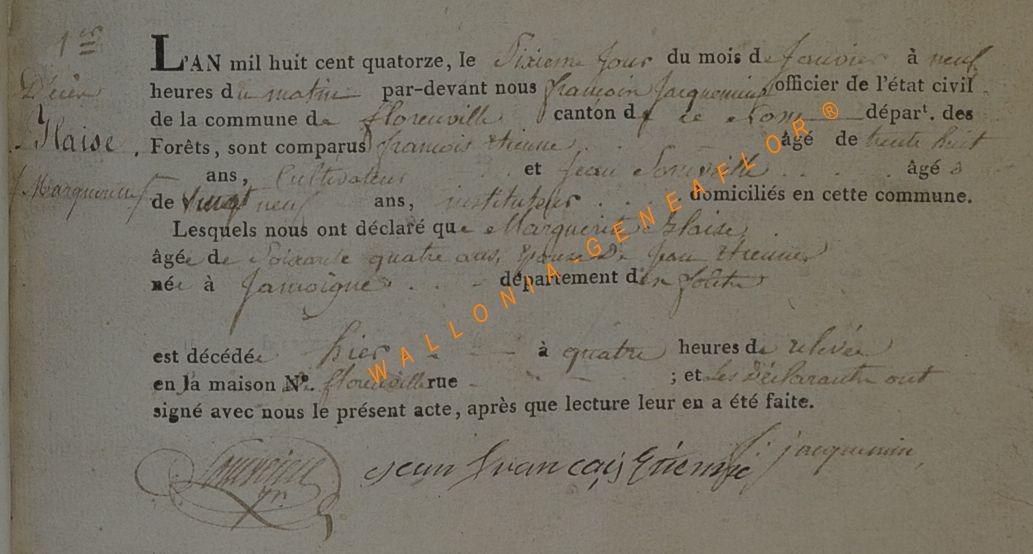 1er
L'AN mil huit cent quatorze, le Sixieme jour du mois de Janvier à neuf
Décès
heures du matin par-devant nous françois Jacquemin officier de l'état civil
de la commune de florenville canton de département des
Blaise
Forêts, sont comparus françois Etienne âgé de trente huit
ans, Cultivateur et Jean âgé
Marguerite
de vingt neuf ans, instituteur domiciliés en cette commune.
Lesquels nous ont déclaré que Marguerite Blaise
âgée de Soixante quatre ans, Epouse de Jean Etienne
née à Jamoigne département des forêts
est décédée hier à quatre heures de relevée
en la maison No. florenville rue ; et les Déclarants ont
signé avec nous le présent acte, après que lecture leur en a été faite.
jean francois Etienne f. jacquemin
WALLONIA-GENEAFLOR ®